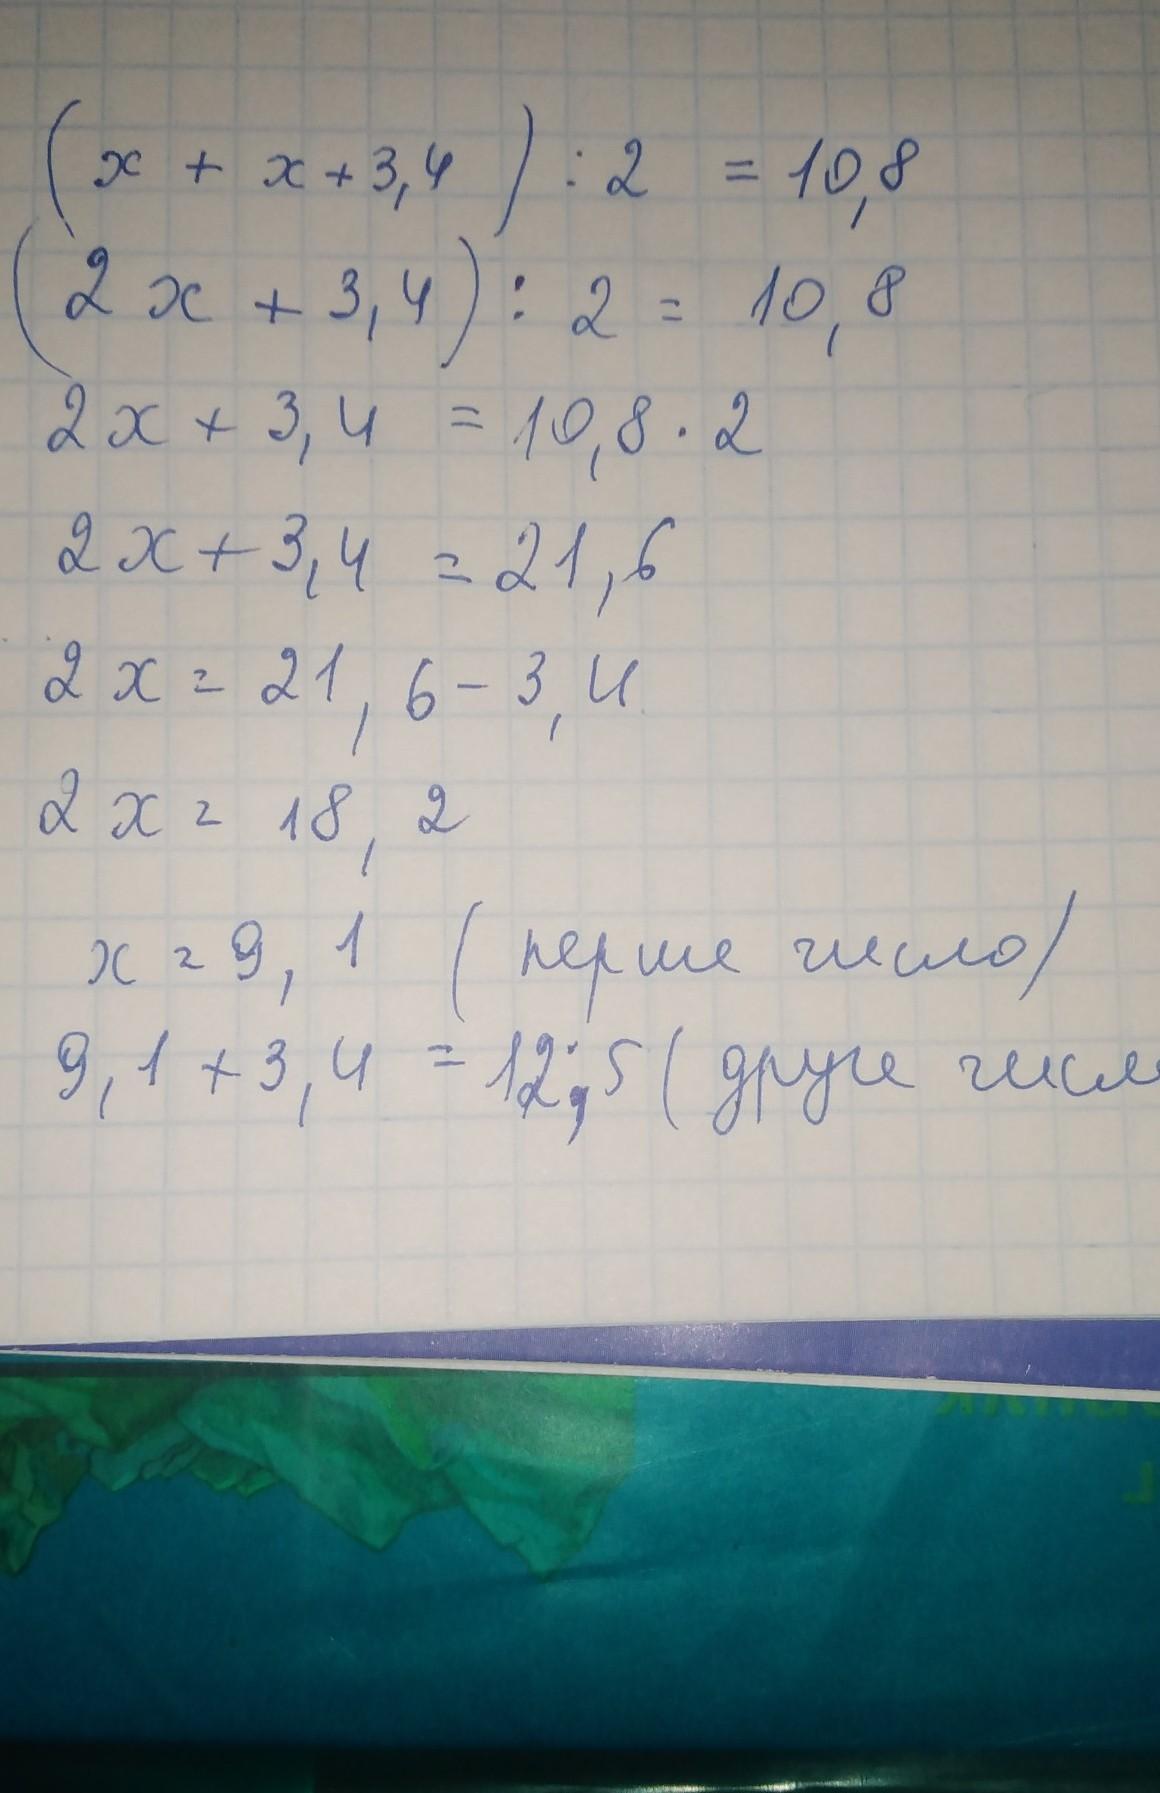 (x + x + 3,4) : 2 = 10,8
(2x + 3,4) : 2 = 10,8
2x + 3,4 = 10,8 · 2
2x + 3,4 = 21,6
2x = 21,6 - 3,4
2x = 18,2
x = 9,1 (перше число)
9,1 + 3,4 = 12,5 (друге числ